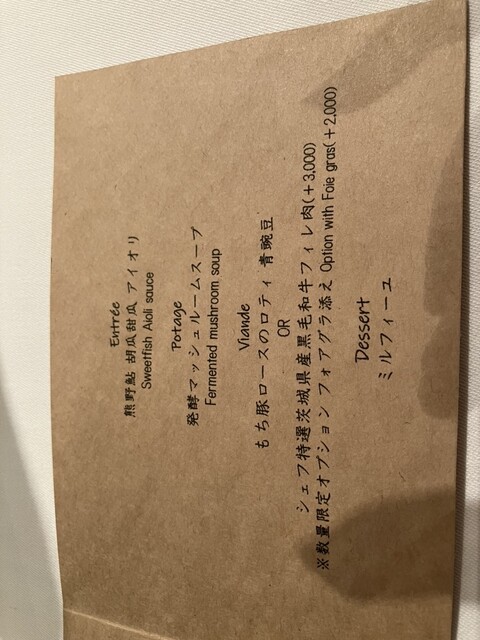 Entrée
熊野鮎 胡瓜甜瓜 アイオリ
Sweetfish Aioli sauce
Potage
発酵マッシュルームスープ
Fermented mushroom soup
Viande
もち豚ロースのロティ 青豌豆
OR
シェフ特選茨城県産黒毛和牛フィレ肉(+3,000)
※数量限定オプション フォアグラ添え Option with Foie gras(+2,000)
Dessert
ミルフィーユ